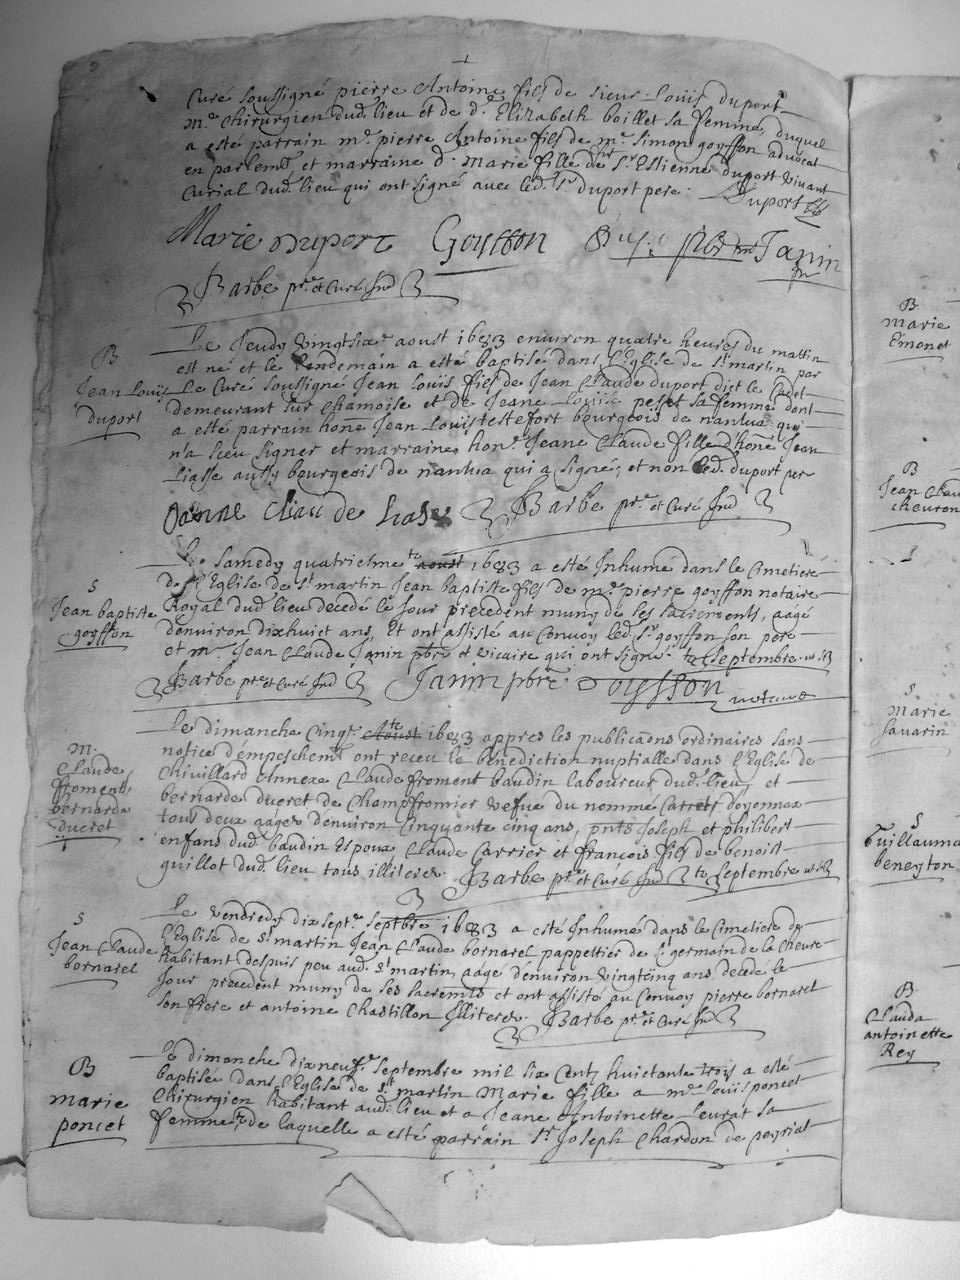 Curé soussigné pierre Antoine fils de sieur Louïs duport
m.re Chirurgien dud. lieu et de d.e Elizabeth boillet sa femme, duquel
a esté parrain m.r pierre Antoine fils de m.re Simon goyffon advocat
en parlem.t et marraine d.e Marie fille de s.r Estienne duport vivant
Curial dud. lieu qui ont signé avec led. s.r duport pere. Duport
Marie Duport Goyffon Janin
Barbe p.re et Curé Ind
B
Jean Louïs
duport
Le Jeudy Vingtsix.e aoust 1683 environ quatre heures du mattin
est né et le Lendemain a esté baptisé dans l'Eglise de st martin par
Le Curé soussigné Jean Louïs fils de Jean Claude duport dict le Cadet
demeurant sur Chamoise et de Jeane Louïse peset sa femme dont
a esté parrain hon.e Jean Louïs testefort bourgeois de nantua qui
n'a sceu signer et marraine hon.e Jeane Claude fille d'hon.e Jean
Liasse aussy bourgeois de nantua qui a signé, et non led. duport pere
Janne Clau de Liase Barbe p.re et Curé Ind
S
Jean baptiste
goyffon
Le Samedy quatriesme aoust 1683 a esté Inhumé dans le Cimetiere
de l'Eglise de st martin Jean baptiste fils de m.re pierre goyffon notaire
Royal dud. lieu decedé le Jour precedent muny de ses sacrements, aagé
denviron dixhuict ans, Et ont assisté au Convoy led. s.r goyffon son pere
et m.re Jean Claude Janin pbre et vicaire qui ont signé. Septembre
Barbe p.re et Curé Ind Janin pbre Goyffon notaire
m.
Claude
froment
bernarde
ducret
Le dimanche Cinq.e Aoust 1683 appres les publicaons ordinaires sans
notice d'empeschem.t ont receu la benediction nuptialle dans l'Eglise de
Chivillard annexe Claude froment baudin laboureur dud. lieu, et
bernarde ducret de Champfromier vefve du nomme Carret doyonnax
tous deux aagés denviron Cinquante cinq ans, pnts Joseph et philibert
enfans dud. baudin Espoux Claude Carrier et françois fils de benoist
guillot dud. lieu tous illiterés Barbe p.re et Curé Ind Septembre
S
Jean Claude
bornarel
Le vendredy dix sept.e septbre 1683 a esté Inhumé dans le Cimetiere de
l'Eglise de st martin Jean Claude bornarel pappettier de st germain de la Cheure
habitant despuis peu aud. st martin, aagé denviron vingtcinq ans decedé le
Jour precedent muny de ses sacremts et ont assisté au Convoy pierre bornarel
son frere et antoine Chastillon Illiterés. Barbe p.re et Curé Ind
B
marie
poncet
Le dimanche dixneuf.e septembre mil six Centz huictante trois a esté
baptisé dans l'Eglise de st martin Marie fille a m.re Louïs poncet
Chirurgien habitant aud. lieu et a Jeane Antoinette Leurat sa
femme, de laquelle a esté parrain s.r Joseph Chardon de peyriat
B
marie
Emonet
B
Jean Clau
chevron
S
Marie
Savarin
S
Guillaume
beneyton
B
Clauda
antoinette
Rey